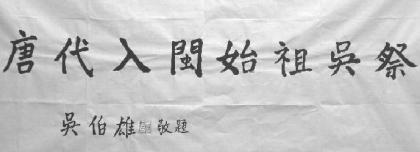 唐代入閩始祖吳祭
吳伯雄敬題